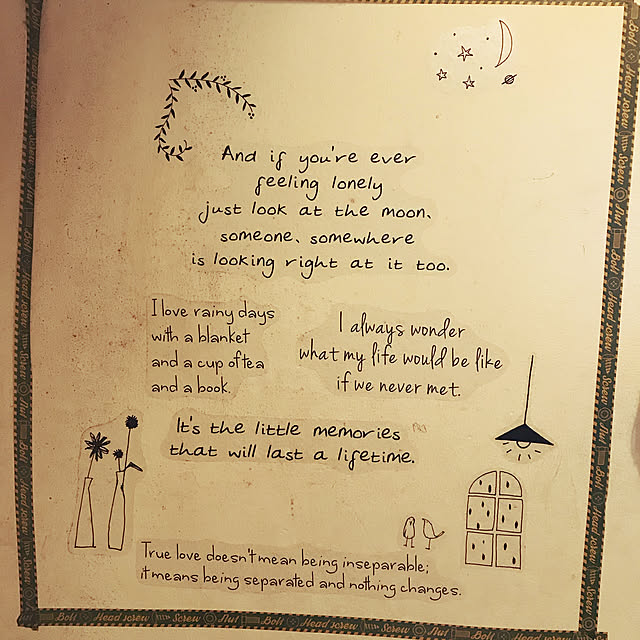 And if you're ever
feeling lonely
just look at the moon.
someone. somewhere
is looking right at it too.
I love rainy days
with a blanket
and a cup of tea
and a book.
I always wonder
what my life would be like
if we never met.
It's the little memories
that will last a lifetime.
True love doesn't mean being inseparable;
it means being separated and nothing changes.
Bolt Head screw Screw Nut Bolt Head screw Screw Nut Bolt Head screw